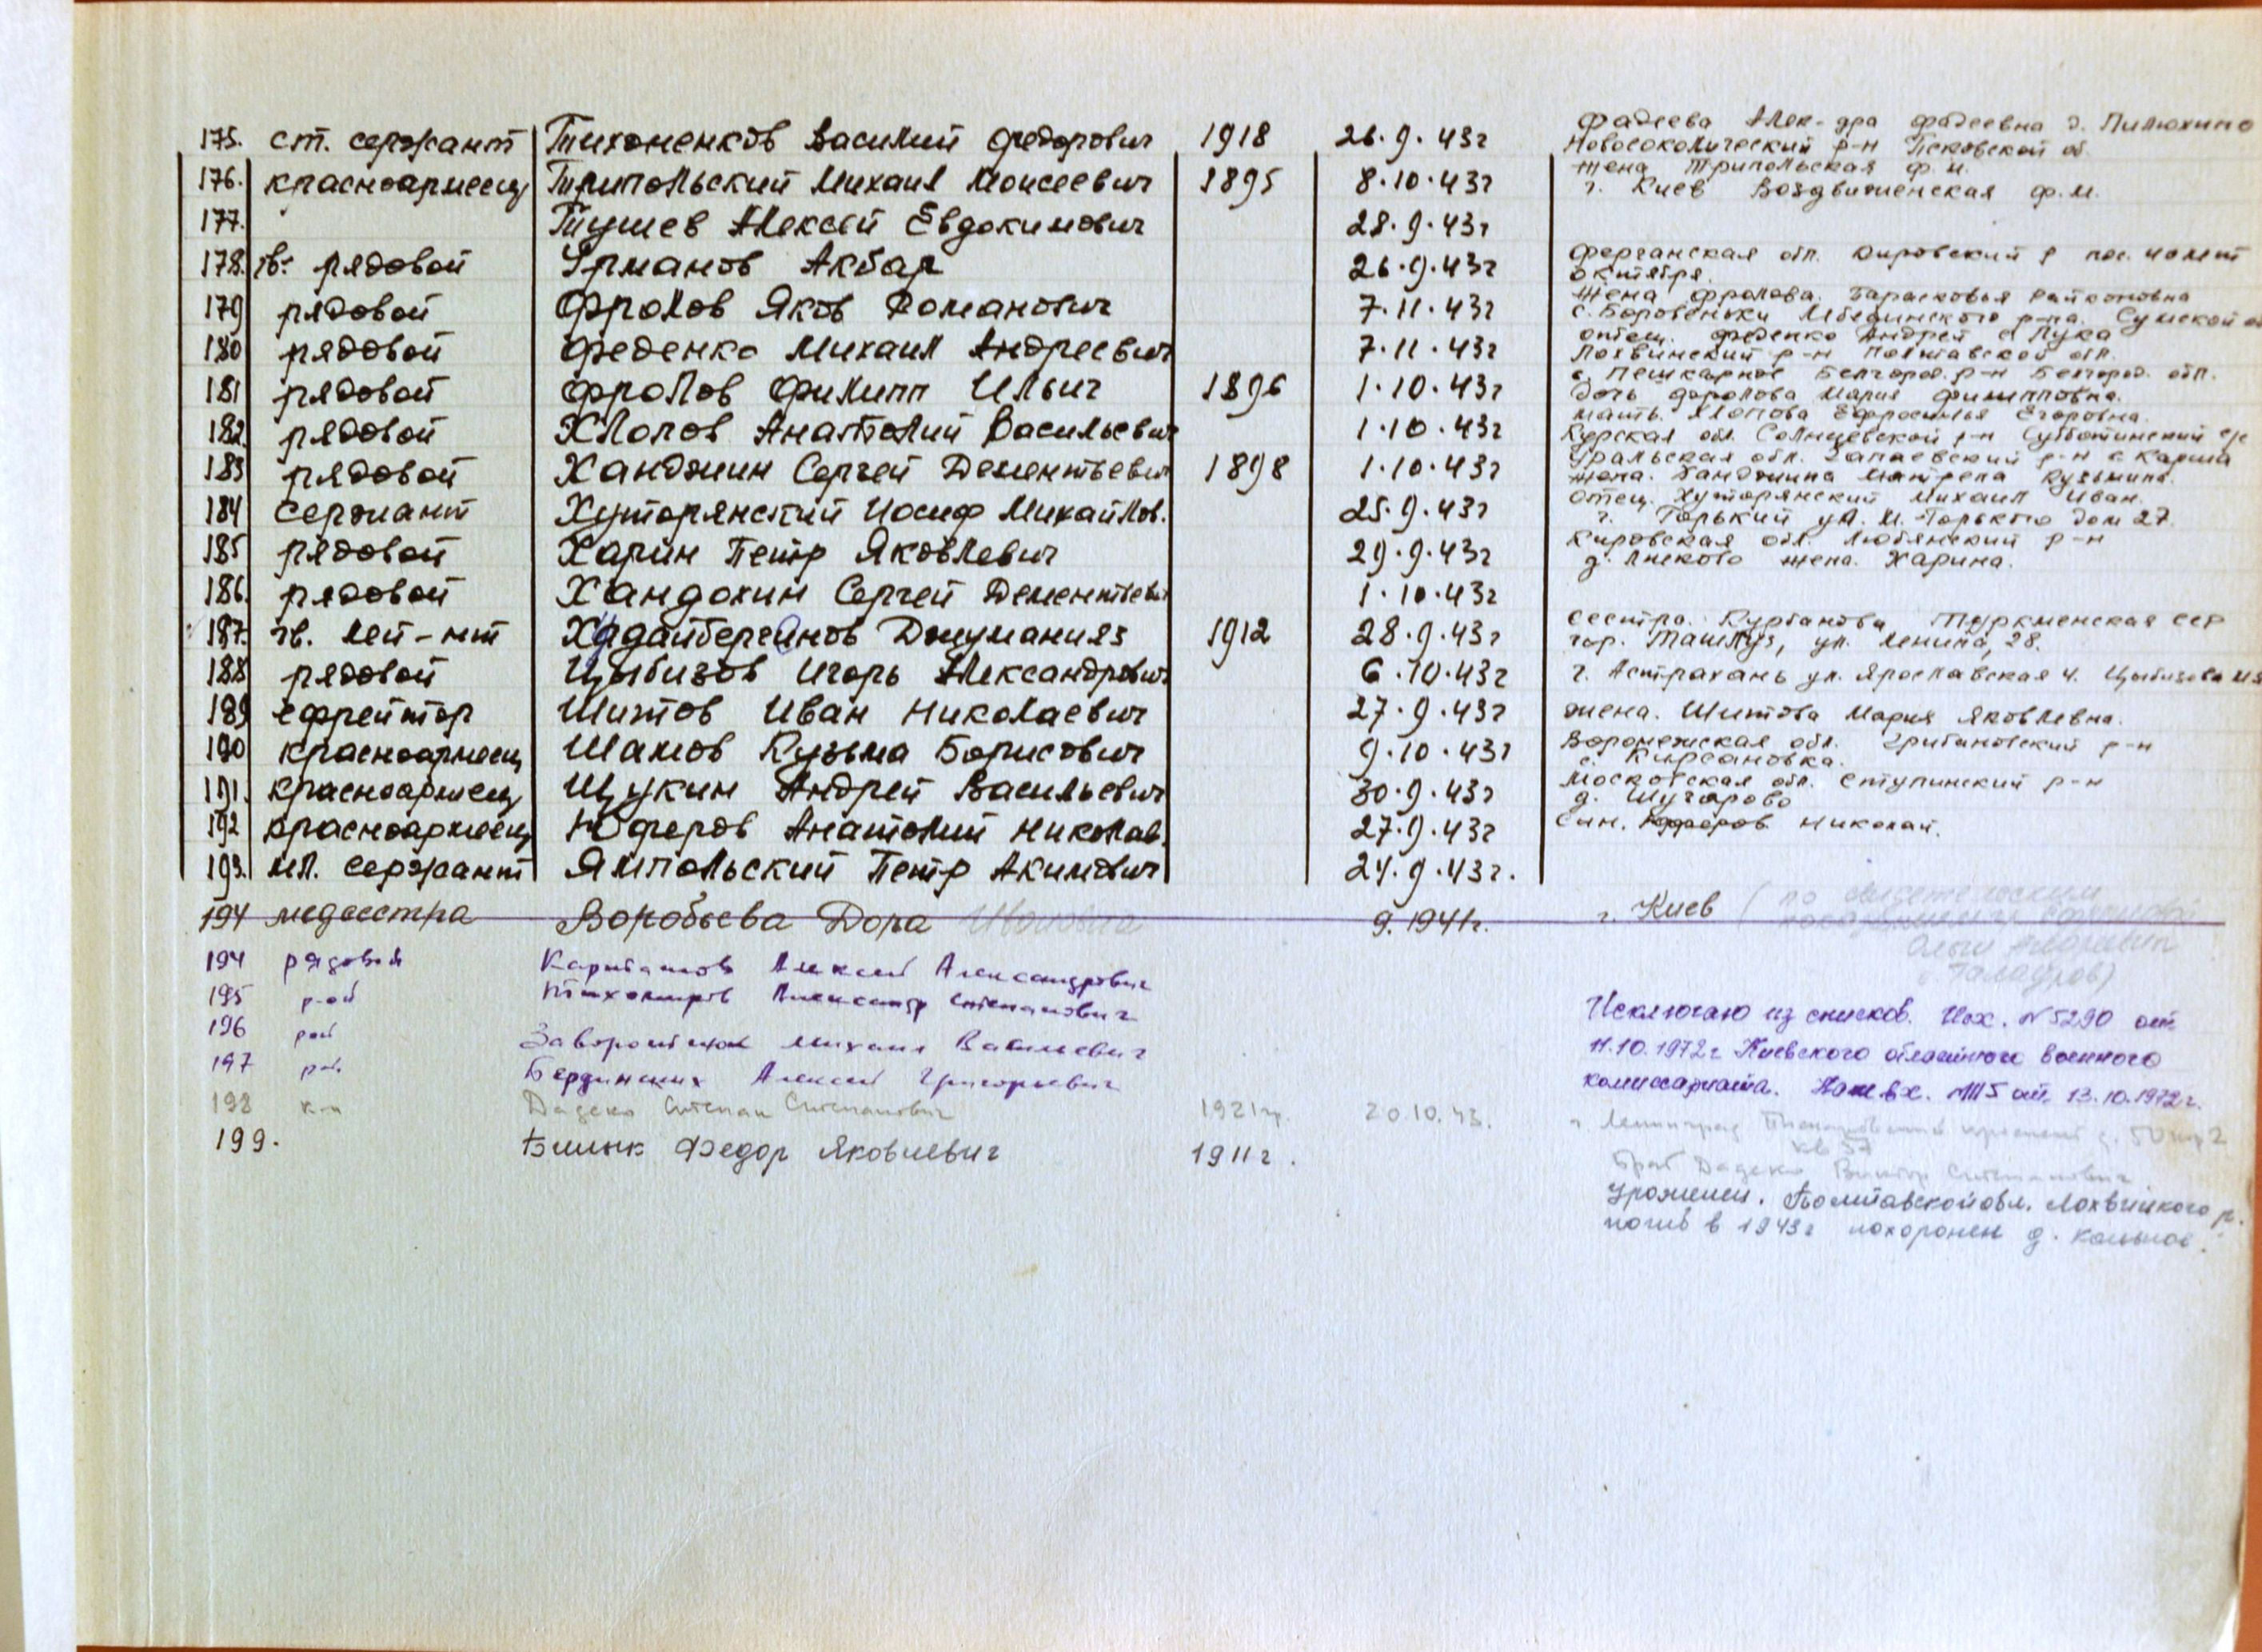 Фадеева Алек-дра Фадеевна д. Пилюхино
175. ст. сержант Тихоненков Василий Федорович 1918 26.9.43г Новосокольнический р-н Псковской об.
жена Трипольская Ф.И.
176. красноармеец Трипольский Михаил Моисеевич 1895 8.10.43г г. Киев Воздвиженская Ф.М.
177. Тушев Алексей Евдокимович 28.9.43г
178. гв. рядовой Урманов Акбар 26.9.43г Ферганская обл. Кировский р пос.
октября.
179 рядовой Фролов Яков Романович 7.11.43г Жена Фролова.
с. Боровеньки Лебединского р-на. Сумской об
180 рядовой Феденко Михаил Андреевич 7.11.43г отец. Феденко Андрей с Лука
Лохвинский р-н Полтавской обл.
181 рядовой Фролов Филипп Ильич 1896 1.10.43г с. Пешкарное Белгород. р-н Белгород. обл.
дочь Фролова Мария Филипповна.
182. рядовой Хлопов Анатолий Васильевич 1.10.43г мать. Ефросинья Егоровна.
Курская обл. Солнцевской р-н Субботинский с/с
183 рядовой Ханджин Сергей Дементьевич 1898 1.10.43г Уральская обл. Чапаевский р-н с Карша
жена. Ханджина Матрена Кузьмина.
184 сержант Хуторянский Иосиф Михайлов. 25.9.43г отец. Хуторянский Михаил Иван.
г. Горький ул. М. Горького дом 27.
185 рядовой Харин Петр Яковлевич 29.9.43г Кировская обл. р-н
д. жена. Харина.
186. рядовой Хандохин Сергей Дементьевич 1.10.43г
187. гв. лей-нт Худайберганов Джуманияз 1912 28.9.43г Сестра. Курбанова Туркменская ССР
гор. Ташауз, ул. Ленина, 28.
188 рядовой Цыбизов Игорь Александрович 6.10.43г г. Астрахань ул. Ярославская 4. Цыбизова
189 ефрейтор Шитов Иван Николаевич 27.9.43г жена. Шитова Мария Яковлевна.
190 красноармеец Шамов Кузьма Борисович 9.10.43г Воронежская обл. Грибановский р-н
с. Кирсановка.
191. красноармеец Щукин Андрей Васильевич 30.9.43г Московская обл. Ступинский р-н
д. Шугарово
192 красноармеец Юферов Анатолий Николав. 27.9.43г Син. Юферов Николай.
193. мл. сержант Ямпольский Петр Акимович 24.9.43г.
194 медсестра Воробьева Дора Ивановна 9.1941г. г. Киев (по
194 рядовой Алексей Александрович
195 р-ой Тихомиров Александр Степанович
Исключаю из списков. Исх. №5290 от
196 рой Заворотнюк Михаил Васильевич 11.10.1972г Киевского областного военного
197 Бердинских Алексей Григорьевич комиссариата. от 13.10.1972г.
198 к-н Дадеко Степан Степанович 1921гр. 20.10.43. г. Ленинград
кв 37
199. Билык Федор Яковлевич 1911г. брат Дадеко Виктор Степанович
Урожен. Полтавской обл. Лохвицкого р.
погиб в 1943г похоронен д.